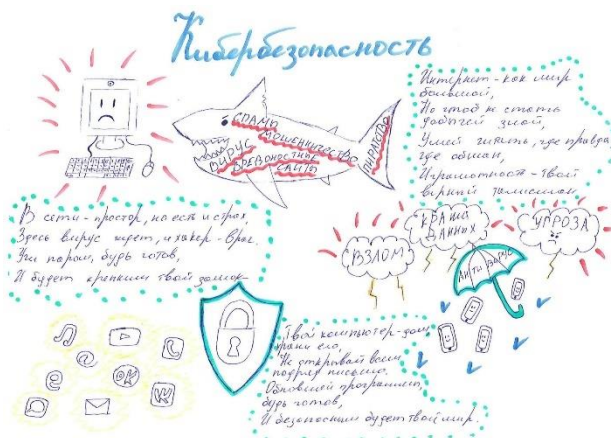 Кибербезопасность
СПАМЫ
МОШЕННИЧЕСТВО
ВИРУС
САЙТЫ
ПИРАТСТВО
Интернет - как мир
большой,
Но чтоб не стать
добычей злой,
Умей читать, где правда,
где обман,
Играмотность - твой
верный талисман
В сети - простор, но есть и страх,
Здесь вирус ждет, и хакер - враг.
Учи пароли, будь готов,
И будет крепким твой замок
ВЗЛОМ
КРАЖА
ДАННЫХ
УГРОЗА
АНТИВИРУС
Твой компьютер - дом
храни его,
Не открывай всем
подряд письмо.
Обновляй программы,
будь готов,
И безопасным будет твой мир.